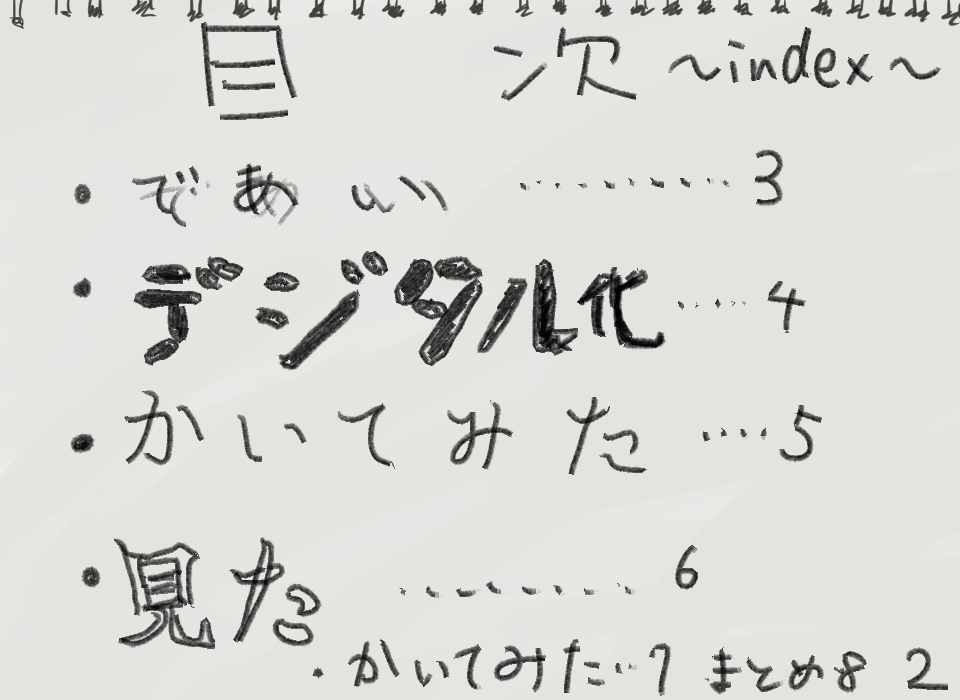 目 次 〜index〜
・であい ……… 3
・デジタル化 …… 4
・かいてみた …5
・見た ……… 6
・かいてみた…7 まとめ8 2